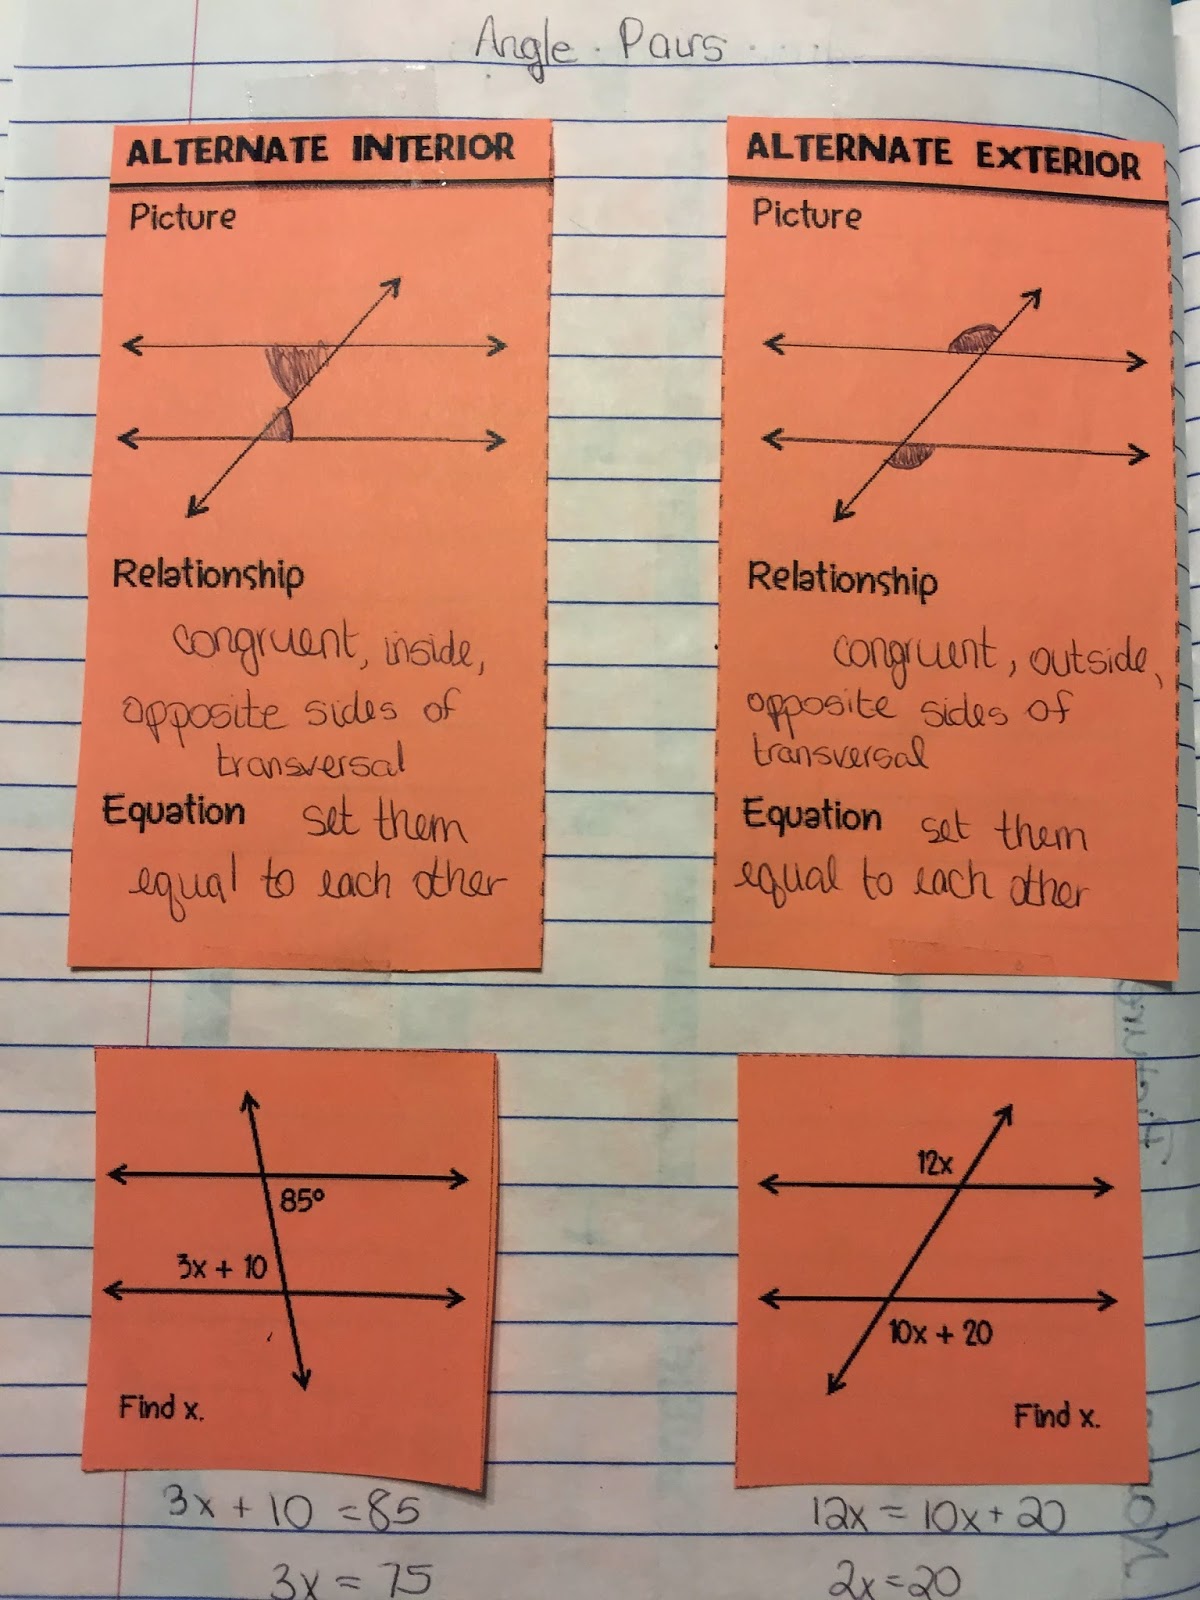 Angle Pairs
ALTERNATE INTERIOR
Picture
Relationship
congruent, inside,
opposite sides of
transversal
Equation set them
equal to each other
ALTERNATE EXTERIOR
Picture
Relationship
congruent, outside,
opposite sides of
transversal
Equation set them
equal to each other
85°
3x + 10
Find x.
3x + 10 = 85
3x = 75
12x
10x + 20
Find x.
12x = 10x + 20
2x = 20